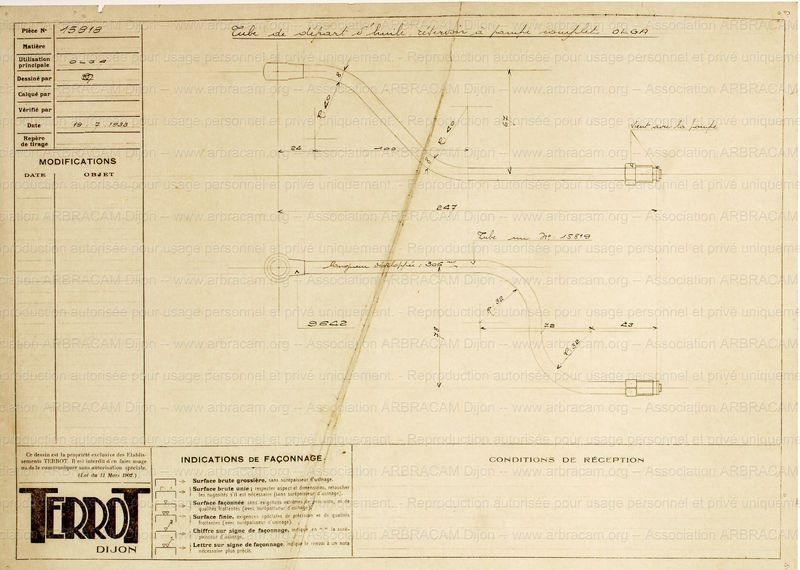 Pièce N° 15819
Tube de départ d'huile, réservoir a pompe complet. OLGA
Matière
Utilisation principale OLGA
Dessiné par
Calqué par
Vérifié par
Date 19.7.1933
Repère de tirage
MODIFICATIONS
DATE OBJET
8
R 40
R 40
67
Vient avec la pompe
24
100
7,8
247
Tube nu N° 15818
Longueur développée : 306 mm
9642
R 32
78
43
78
R 32
Ce dessin est la propriété exclusive des Etablis-
sements TERROT. Il est interdit d'en faire usage
ou de le communiquer sans autorisation spéciale.
(Loi du 11 Mars 1902.)
TERROT
DIJON
INDICATIONS DE FAÇONNAGE
Surface brute grossière, sans surépaisseur d'usinage.
Surface brute unie ; respecter aspect et dimensions, retoucher
les rugosités s'il est nécessaire (sans surépaisseur d'usinage).
Surface façonnée sans exigences extrêmes de précision, et de
qualités frottantes (avec surépaisseur d'usinage).
Surface finie, exigences spéciales de précision et de qualités
frottantes (avec surépaisseur d'usinage).
Chiffre sur signe de façonnage, indique en m/m la suré-
paisseur d'usinage.
Lettre sur signe de façonnage, indique le renvoi à un nota
nécessaire plus précis.
CONDITIONS DE RÉCEPTION
www.arbracam.org -- Association ARBRACAM Dijon -- www.arbracam.org -- Association ARBRACAM Dijon
Reproduction autorisée pour usage personnel et privé uniquement. -- Reproduction autorisée pour usage personnel et privé uniquement.